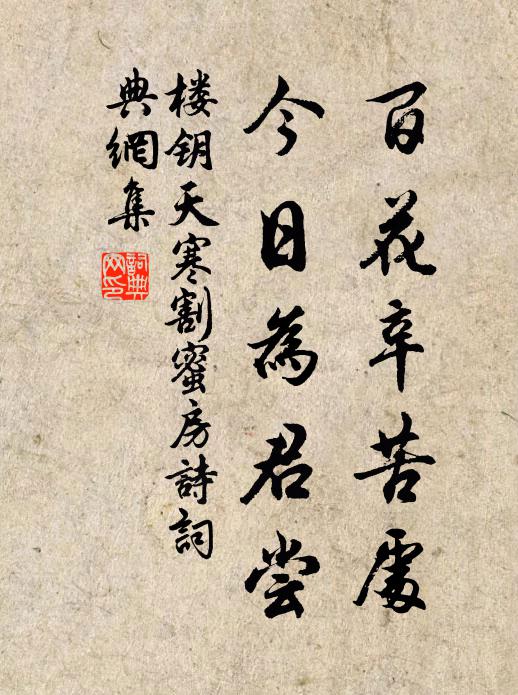 百花辛苦處
今日為君尝
楼钥天寒割蜜房詩詞
典網集
詞典
网印